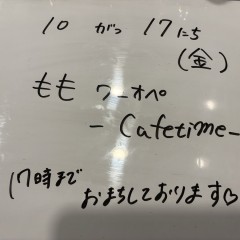 10 がつ 17にち
(金)
もも ワーオペ
- Cafetime -
17時まで
おまちしております♡